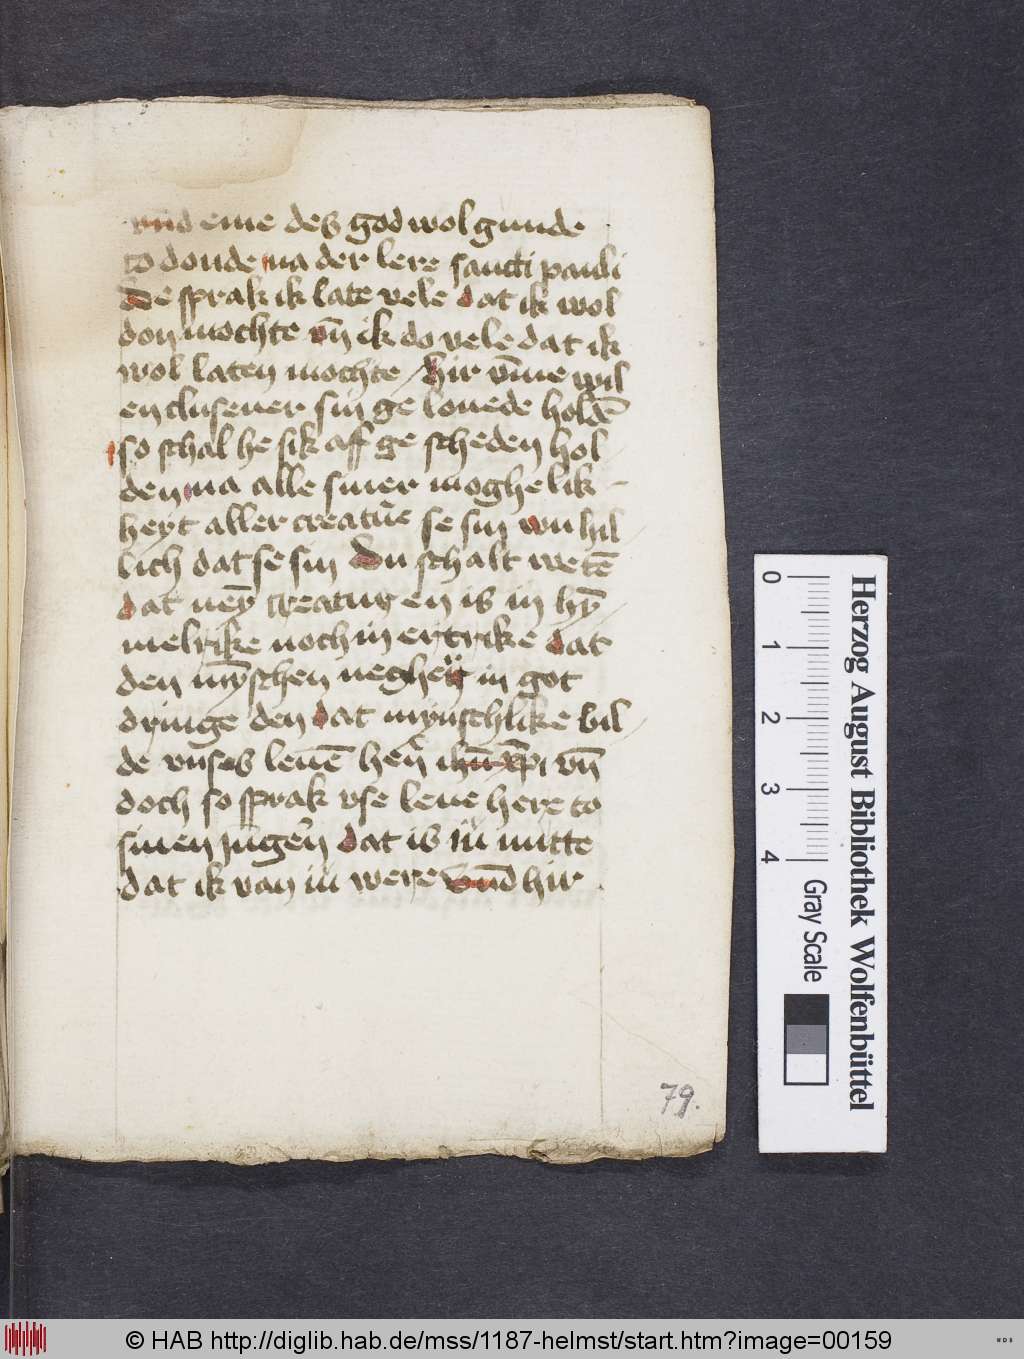 vnd eme des god wol gunde
to donde na der lere sancti pauli
de sprak ik late vele dat ik wol
don mochte vn̄ ik do vele dat ik
wol laten mochte / hir vm̄me wil
en clusener sin ge louede holdē
so schal he sik aff ge scheden hol
den na alle siner moghelik
heyt aller creatůe se sin wu hil
lich dat se sin du schalt wetē
dat neȳ creaturen is in hȳ
melrike noch in ertrike dat
den mȳschen neghe in got
dringe den dat mynschlike bil
de vnses leuē herī ihū xp̄i vn̄
doch so sprak vse leue here to
sinen Jungerī dat is iu nutte
dat ik van iu were vnd hir
79.
0
1
2
3
4
Gray Scale
Herzog August Bibliothek Wolfenbüttel
© HAB http://diglib.hab.de/mss/1187-helmst/start.htm?image=00159